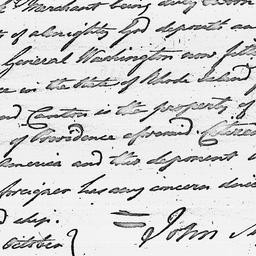 Merchant being duly sworn
of almighty God deposeth an
General Washington now fitt
ce in the State of Rhode Island
nd Canton is the property of
of Providence aforesaid Citizen
America and this deponent
foreigner has any concern dire
d ship.
October } John